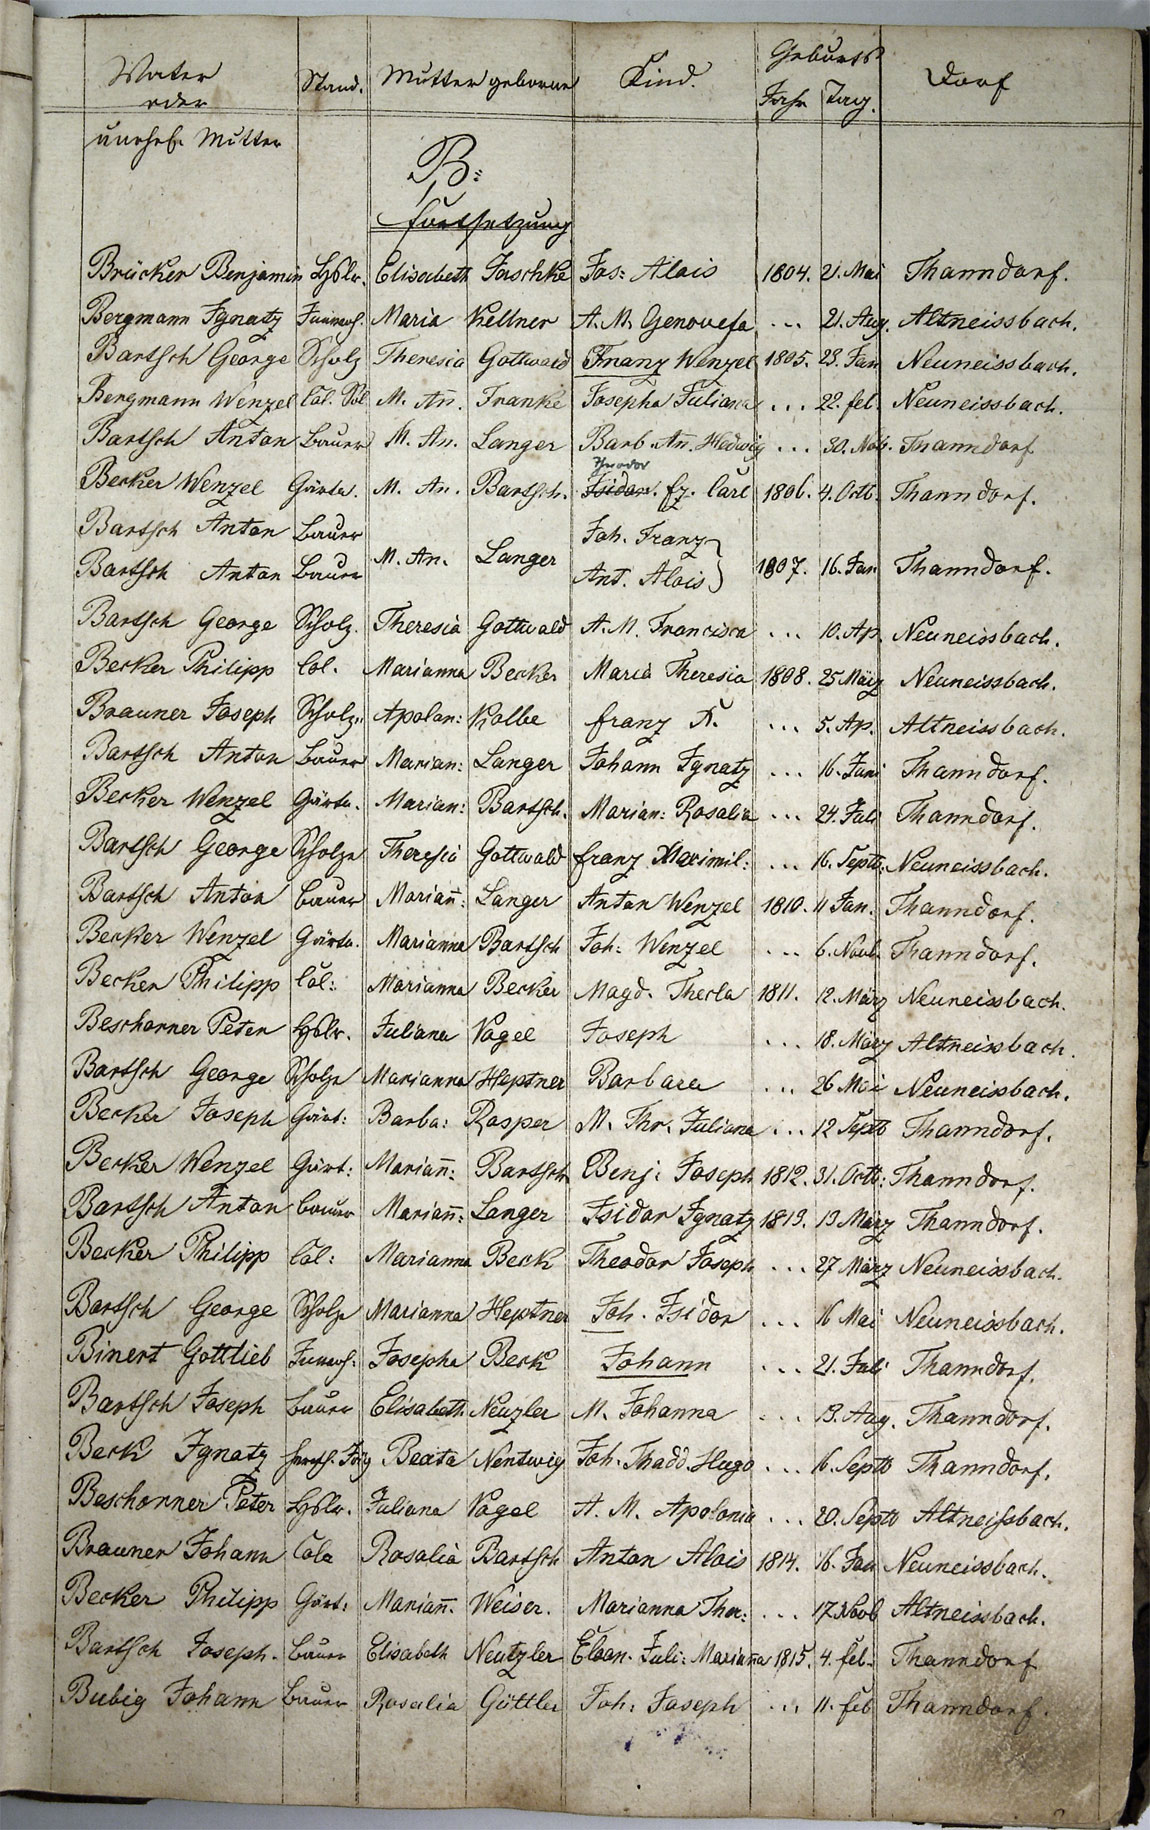 Vater Stand. Mutter geborne Kind. Geburts Dorf
oder Jahr Tag.
unehel. Mutter
B:
Fortsetzung
Brücker Benjamin Hslr. Elisabeth Jaschke Jos: Alois 1804. 21. Mai Thanndorf.
Bergmann Ignatz Maria Kellner A. M. Genovefa ... 21. Aug. Altneissbach.
Bartsch George Scholz Theresia Gottwald Franz Wenzel 1805. 23. Jan Neuneissbach.
Bergmann Wenzel Col. M. An̄. Franke Josepha Juliana ... 22. feb. Neuneissbach.
Bartsch Anton Bauer M. An. Langer Barb. An̄. Hedwig ... 30. Nob. Thanndorf
Theodor
Becker Wenzel Gärtn. M. An. Bartsch. Isidor. fz. Carl 1806. 4. Octb. Thanndorf.
Bartsch Anton Bauer Joh. Franz
M. An. Langer 1807. 16. Jan Thanndorf.
Bartsch Anton Bauer Ant. Alois
Bartsch George Scholz. Theresia Gottwald A. M. Francisca ... 10. Ap. Neuneissbach.
Becker Philipp Col. Marianna Becker Maria Theresia 1808. 25 März Neuneissbach.
Brauner Joseph Scholz. Apolon: Kolbe franz X. ... 5. Ap. Altneissbach.
Bartsch Anton Bauer Marian: Langer Johann Ignatz ... 16. Juni Thanndorf.
Becker Wenzel Gärtn. Marian: Bartsch. Marian: Rosalia ... 24. Juli Thanndorf.
Bartsch George Scholze Theresia Gottwald franz Maximil: ... 16. Septb. Neuneissbach.
Bartsch Anton Bauer Marian̄: Langer Anton Wenzel 1810. 11 Jan. Thanndorf.
Becker Wenzel Gärtn. Marianna Bartsch Joh: Wenzel ... 6. Novb. Thanndorf.
Becker Philipp Col: Marianna Becker Magd. Thecla 1811. 12. März Neuneissbach.
Beschorner Peter Hslr. Juliana Vogel Joseph ... 18. März Altneissbach.
Bartsch George Scholze Marianna Heptner Barbara ... 26 Mai Neuneissbach.
Becker Joseph Gärt: Barba: Rosper M. Thr. Juliana ... 12 Septb Thanndorf.
Becker Wenzel Gärt: Marian̄: Bartsch Benj: Joseph 1812. 31. Octb: Thanndorf.
Bartsch Anton Bauer Marian̄: Langer Isidor Ignatz 1813. 13 März Thanndorf.
Becker Philipp Col: Marianna Beck Theodor Joseph ... 27 März Neuneissbach.
Bartsch George Scholze Marianna Heptner Joh. Isidor ... 16 Mai Neuneissbach.
Binert Gottlieb Josepha Beck Johann ... 21. Juli Thanndorf.
Bartsch Joseph Bauer Elisabeth Neuzler M. Johanna ... 13. Aug. Thanndorf.
Beck Ignatz Beata Nentwig Joh. Thadd. Hugo ... 16. Septb Thanndorf.
Beschorner Peter Hslr. Juliana Vogel A. M. Apolonia ... 20. Septb Altneissbach.
Brauner Johann Colo Rosalia Bartsch Anton Alois 1814. 16. Jan Neuneissbach.
Becker Philipp Gärt: Marian̄. Weiser. Marianna Ther: ... 17. Novb Altneissbach.
Bartsch Joseph. Bauer Elisabeth Neutzler Eleon. Juli: Marian̄a 1815. 4. feb. Thanndorf
Bubig Johann Bauer Rosalia Göttler Joh: Joseph ... 11. feb Thanndorf.